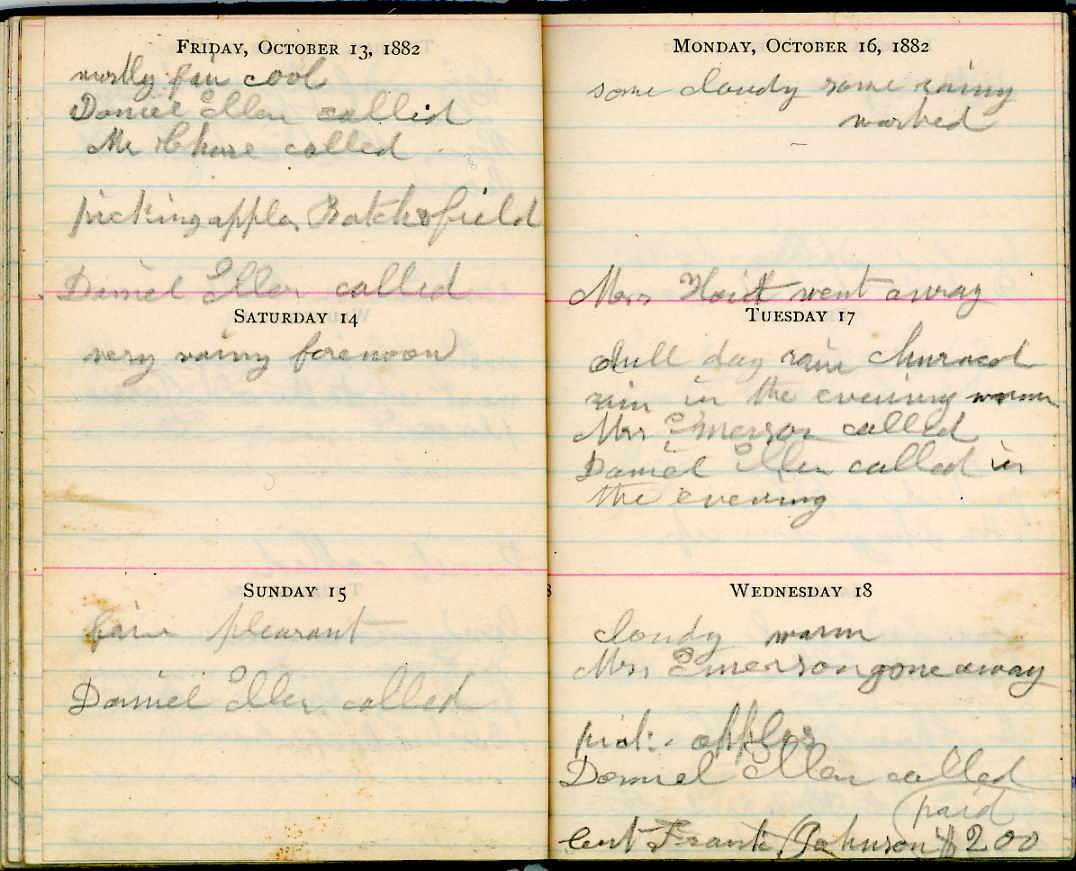 FRIDAY, OCTOBER 13, 1882
mostly fair cool
Daniel Ellen called
Mr Chase called
picking apples Batchfield
Daniel Ellen called
SATURDAY 14
very rainy forenoon
SUNDAY 15
fair pleasant
Daniel Ellen called
MONDAY, OCTOBER 16, 1882
some cloudy some rainy
washed
Mrs Hoitt went away
TUESDAY 17
dull day rain
rain in the evening warm
Mrs Emerson called
Daniel Ellen called in
the evening
WEDNESDAY 18
cloudy warm
Mrs Emerson gone away
pick apples
Daniel Ellen called
paid
lent Frank Johnson $200